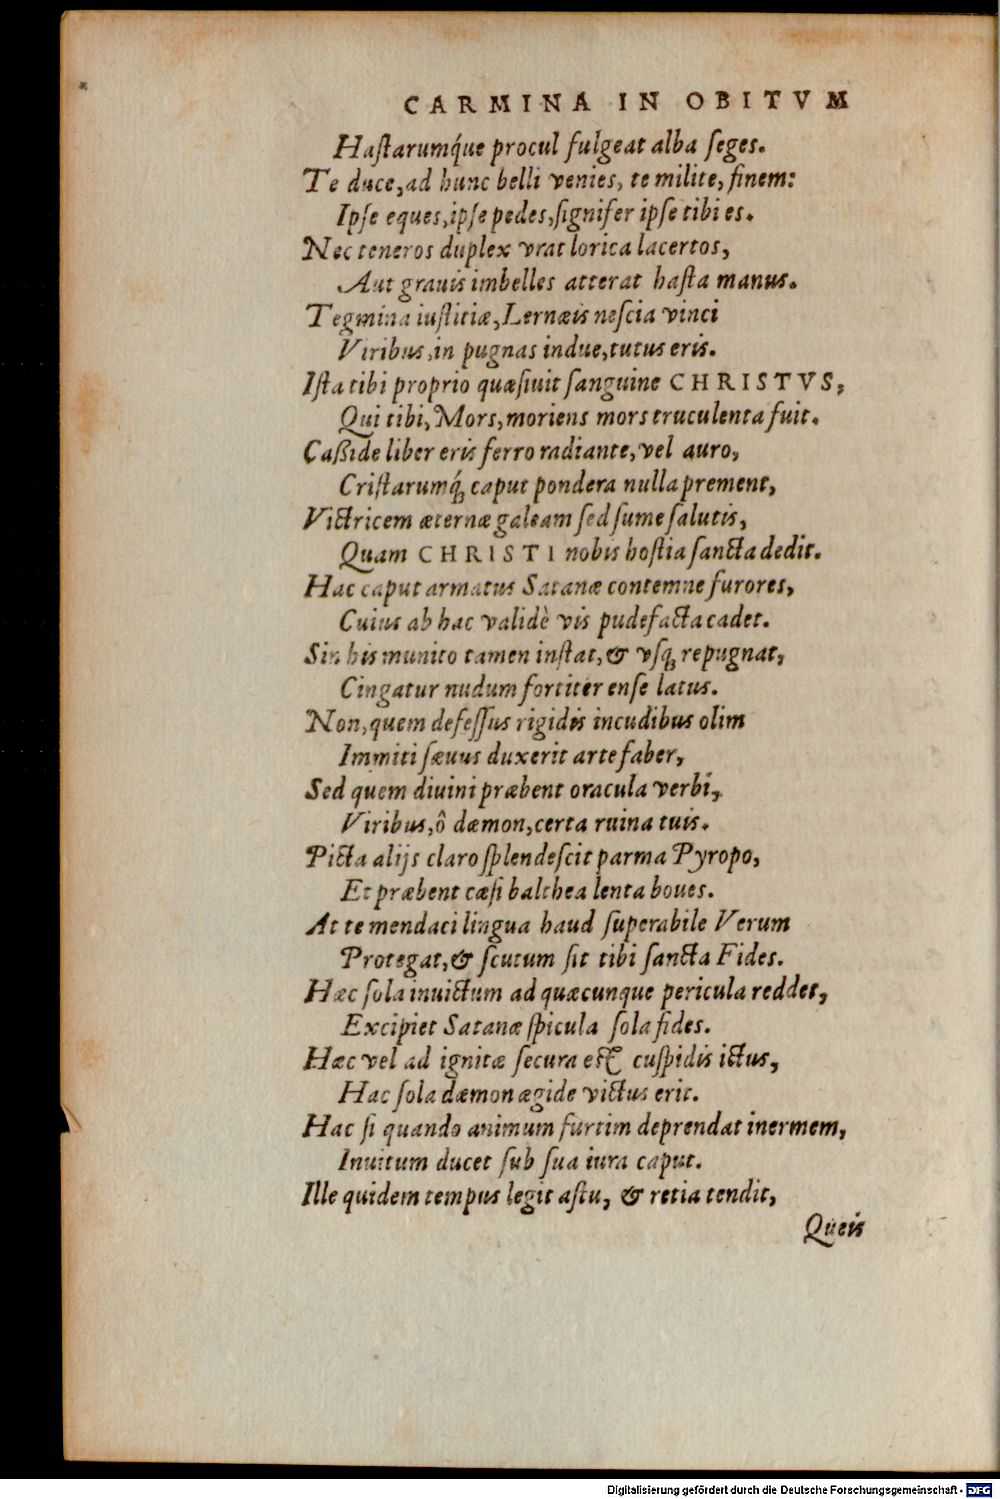 CARMINA IN OBITVM
Haſtarumq́ue procul fulgeat alba ſeges.
Te duce, ad hunc belli venies, te milite, finem:
Ipſe eques, ipſe pedes, ſignifer ipſe tibi es.
Nec teneros duplex vrat lorica lacertos,
Aut grauis imbelles atterat haſta manus.
Tegmina iuſtitiæ, Lernæis neſcia vinci
Viribus, in pugnas indue, tutus eris.
Iſta tibi proprio quæſiuit ſanguine CHRISTVS,
Qui tibi, Mors, moriens mors truculenta fuit.
Caßide liber eris ferro radiante, vel auro,
Criſtarumq́; caput pondera nulla prement,
Victricem æternæ galeam ſed ſume ſalutis,
Quam CHRISTI nobis hoſtia ſancta dedit.
Hac caput armatus Satanæ contemne furores,
Cuius ab hac validè vis pudefacta cadet.
Sin his munito tamen inſtat, & vſq; repugnat,
Cingatur nudum fortiter enſe latus.
Non, quem defeſſus rigidis incudibus olim
Immiti ſæuus duxerit arte faber,
Sed quem diuini præbent oracula verbi,
Viribus, ô dæmon, certa ruina tuis.
Picta alijs claro ſplendeſcit parma Pyropo,
Et præbent cæſi balthea lenta boues.
At te mendaci lingua haud ſuperabile Verum
Protegat, & ſcutum ſit tibi ſancta Fides.
Hæc ſola inuictum ad quæcunque pericula reddet,
Excipiet Satanæ ſpicula ſola fides.
Hæc vel ad ignitæ ſecura eſt cuſpidis ictus,
Hac ſola dæmon ægide victus erit.
Hac ſi quando animum furtim deprendat inermem,
Inuitum ducet ſub ſua iura caput.
Ille quidem tempus legit aſtu, & retia tendit,
Queis
Digitalisierung gefördert durch die Deutsche Forschungsgemeinschaft - DFG